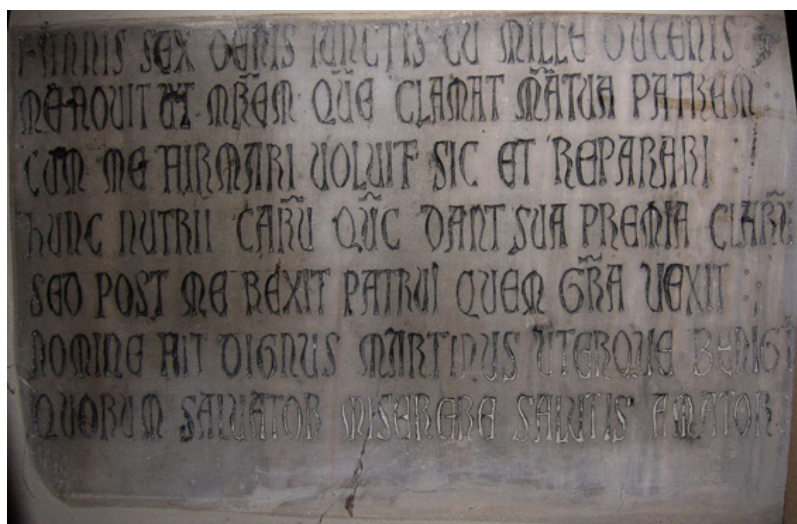 ANNIS SEX DENIS IUNCTIS CU MILLE DUCENIS
ME NOUIT UT MREM QUE CLAMAT MATUA PATREM
CUM ME FIRMARI UOLUIT SIC ET REPARARI
HUNC NUTRII CARU QUC DANT SUA PREMIA CLARU
SED POST ME REXIT PATRUI QUEM GRA UEXIT
NOMINE AIT DIGNUS MARTINUS UTERQUE BENIG
QUORUM SALUATOR MISERERE SALUTIS AMATOR